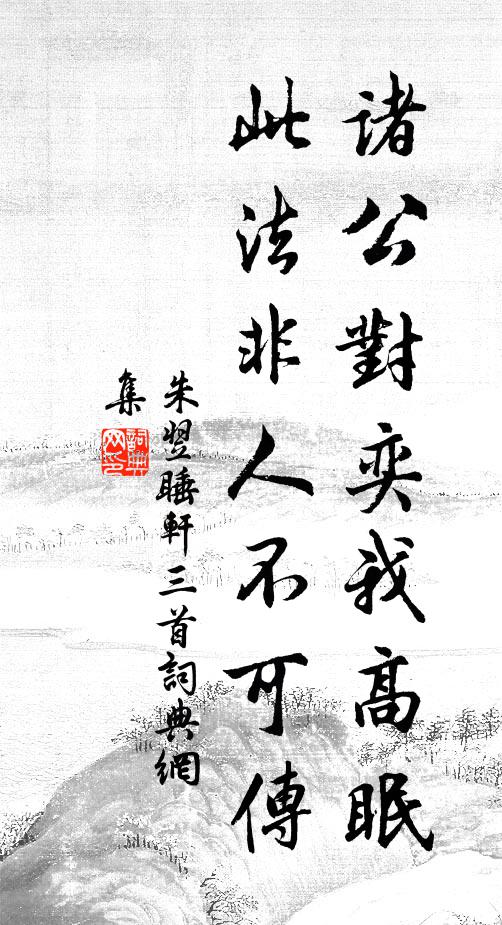 諸公對奕我高眠
此法非人不可傳
朱翌睡軒三首詞典網
集
詞典網印